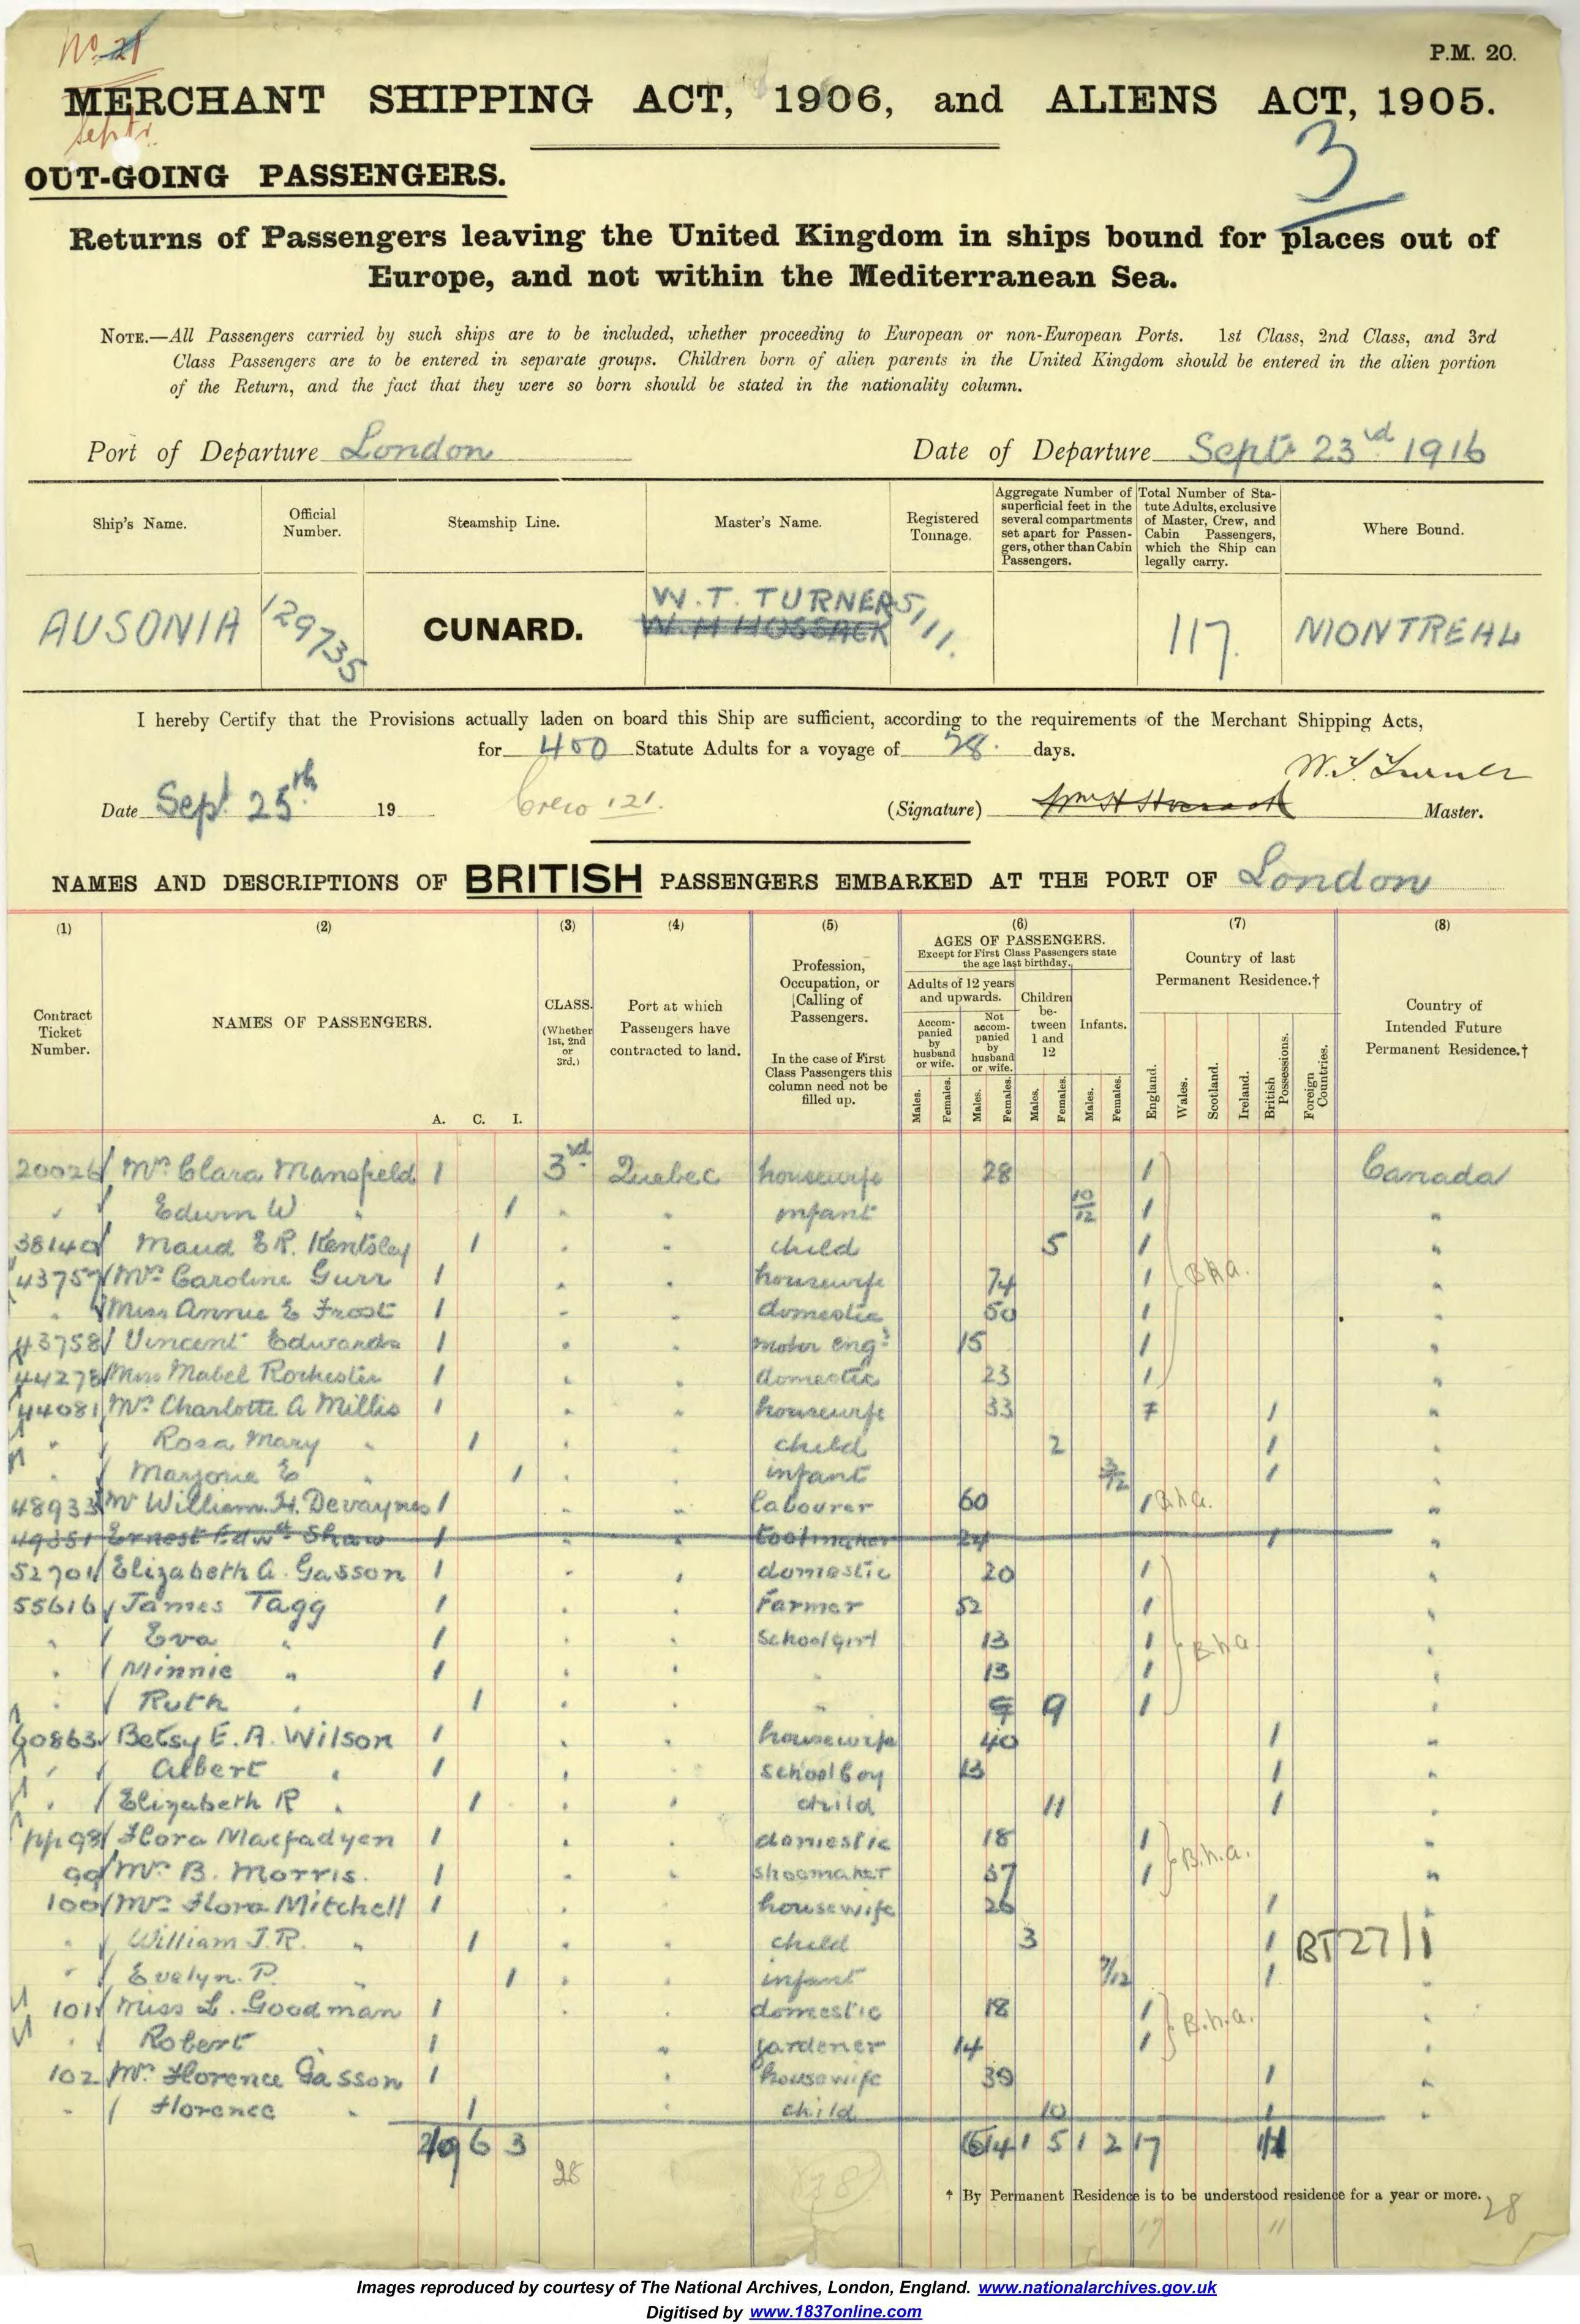 No. 21
P.M. 20.
MERCHANT SHIPPING ACT, 1906, and ALIENS ACT, 1905.
Sept.
3
OUT-GOING PASSENGERS.
Returns of Passengers leaving the United Kingdom in ships bound for places out of
Europe, and not within the Mediterranean Sea.
NOTE.—All Passengers carried by such ships are to be included, whether proceeding to European or non-European Ports. 1st Class, 2nd Class, and 3rd
Class Passengers are to be entered in separate groups. Children born of alien parents in the United Kingdom should be entered in the alien portion
of the Return, and the fact that they were so born should be stated in the nationality column.
Port of Departure London Date of Departure Sept. 23rd 1916
Ship's Name. Official Number. Steamship Line. Master's Name. Registered Tonnage. Aggregate Number of superficial feet in the several compartments set apart for Passengers, other than Cabin Passengers. Total Number of Statute Adults, exclusive of Master, Crew, and Cabin Passengers, which the Ship can legally carry. Where Bound.
AUSONIA 129735 CUNARD. W. T. TURNER W. H HOSSACK 5,111. 117. MONTREAL
I hereby Certify that the Provisions actually laden on board this Ship are sufficient, according to the requirements of the Merchant Shipping Acts,
for 400 Statute Adults for a voyage of 28. days.
W. T. Turner
Date Sept. 25th 19 Crew 121. (Signature) Wm H Hossack Master.
NAMES AND DESCRIPTIONS OF BRITISH PASSENGERS EMBARKED AT THE PORT OF London
(1) (2) (3) (4) (5) (6) (7) (8)
Contract Ticket Number.
NAMES OF PASSENGERS.
A. C. I.
CLASS. (Whether 1st, 2nd or 3rd.)
Port at which Passengers have contracted to land.
Profession, Occupation, or Calling of Passengers.
In the case of First Class Passengers this column need not be filled up.
AGES OF PASSENGERS.
Except for First Class Passengers state the age last birthday.
Adults of 12 years and upwards.
Accompanied by husband or wife.
Not accompanied by husband or wife.
Children between 1 and 12
Infants.
Males. Females. Males. Females. Males. Females. Males. Females.
Country of last Permanent Residence.†
England. Wales. Scotland. Ireland. British Possessions. Foreign Countries.
Country of Intended Future Permanent Residence.†
20026 Mrs Clara Mansfield 1 3rd Quebec housewife 28 1 Canada
" Edwin W " 1 " " infant 10/12 1 "
38140 Maud E R. Kentsley 1 " " child 5 1 "
43757 Mrs Caroline Gurr 1 " " housewife 74 1 B.N.A. "
" Miss Annie E Frost 1 " " domestic 50 1 "
43758 Vincent Edwards 1 " " motor engr 15 1 "
44278 Miss Mabel Rochester 1 " " domestic 23 1 "
44081 Mrs Charlotte A Millis 1 " " housewife 33 1 1 "
" Rosa Mary " 1 " " child 2 1 "
" Marjorie E " 1 " " infant 3/12 1 "
48933 Mr William H. Devaynes 1 " " labourer 60 1 B.N.A. "
49351 Ernest Edwd Shaw 1 " " toolmaker 24 1 "
52701 Elizabeth A. Gasson 1 " " domestic 20 1 "
55616 James Tagg 1 " " Farmer 52 1 "
" Eva " 1 " " Schoolgirl 13 1 B.N.A. "
" Minnie " 1 " " " 13 1 "
" Ruth " 1 " " " 9 9 1 "
60863 Betsy E. A. Wilson 1 " " housewife 40 1 "
" Albert " 1 " " schoolboy 13 1 "
" Elizabeth R " 1 " " child 11 1 "
pp 98 Flora Macfadyen 1 " " domestic 18 1 B.N.A. "
99 Mr B. Morris. 1 " " shoemaker 37 1 "
100 Mrs Flora Mitchell 1 " housewife 26 1 "
" William J. R. " 1 " " child 3 1 BT27/1
" Evelyn. P. " 1 " " infant 7/12 1 "
101 Miss L. Goodman 1 " " domestic 18 1 B.N.A. "
" Robert 1 " gardener 14 1 "
102 Mrs Florence Gasson 1 " housewife 39 1 "
" Florence " 1 " child 10 1 "
19 6 3 5 14 1 5 1 2 17 11
28
† By Permanent Residence is to be understood residence for a year or more.
28
17 11
Images reproduced by courtesy of The National Archives, London, England. www.nationalarchives.gov.uk
Digitised by www.1837online.com